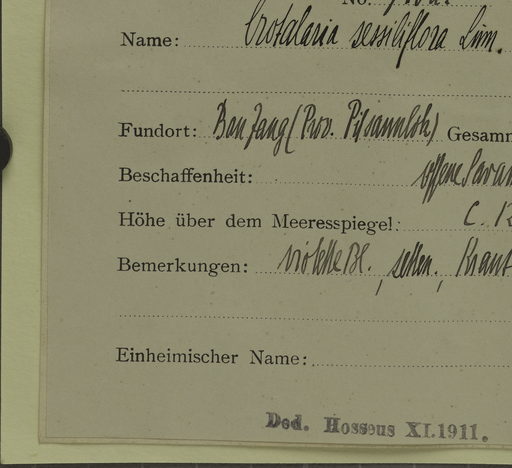 No.
Name: Crotalaria sessiliflora Linn.
Fundort: Ban Jang (Prov. Pitsanulok) Gesamm
Beschaffenheit: offene Savan
Höhe über dem Meeresspiegel: C.
Bemerkungen: violette Bl., selten, Kraut
Einheimischer Name:
Ded. Hosseus XI.1911.